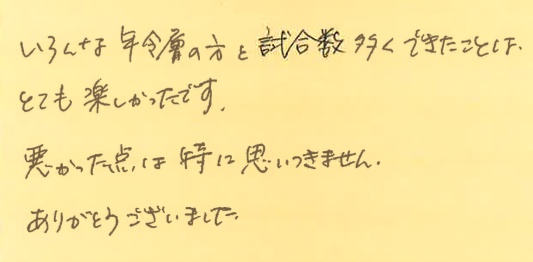 いろんな年令層の方と試合数多くできたことは、
とても楽しかったです。
悪かった点は特に思いつきません。
ありがとうございました。